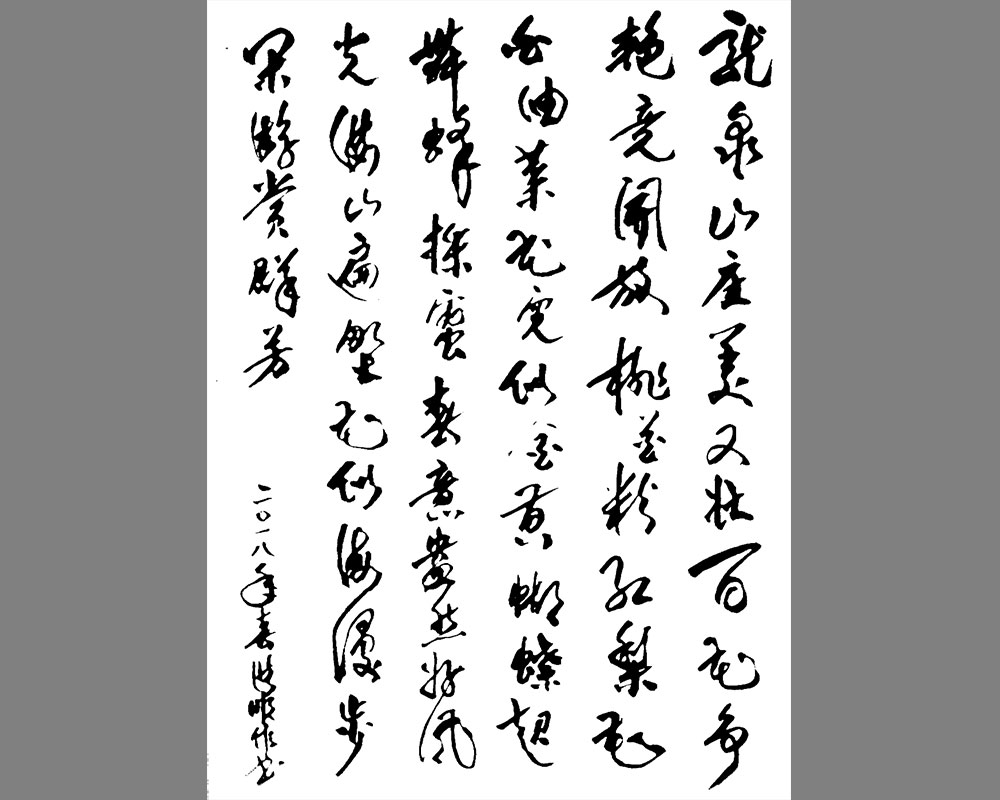 龍泉山庄美又壮百花争
艳竞開放桃花粉红梨花
白油菜花竟似金黄蝴蝶起
舞蜂採蜜春意盎然好风
光满山遍野花似海漫步
游赏群芳
二〇一八年春作书